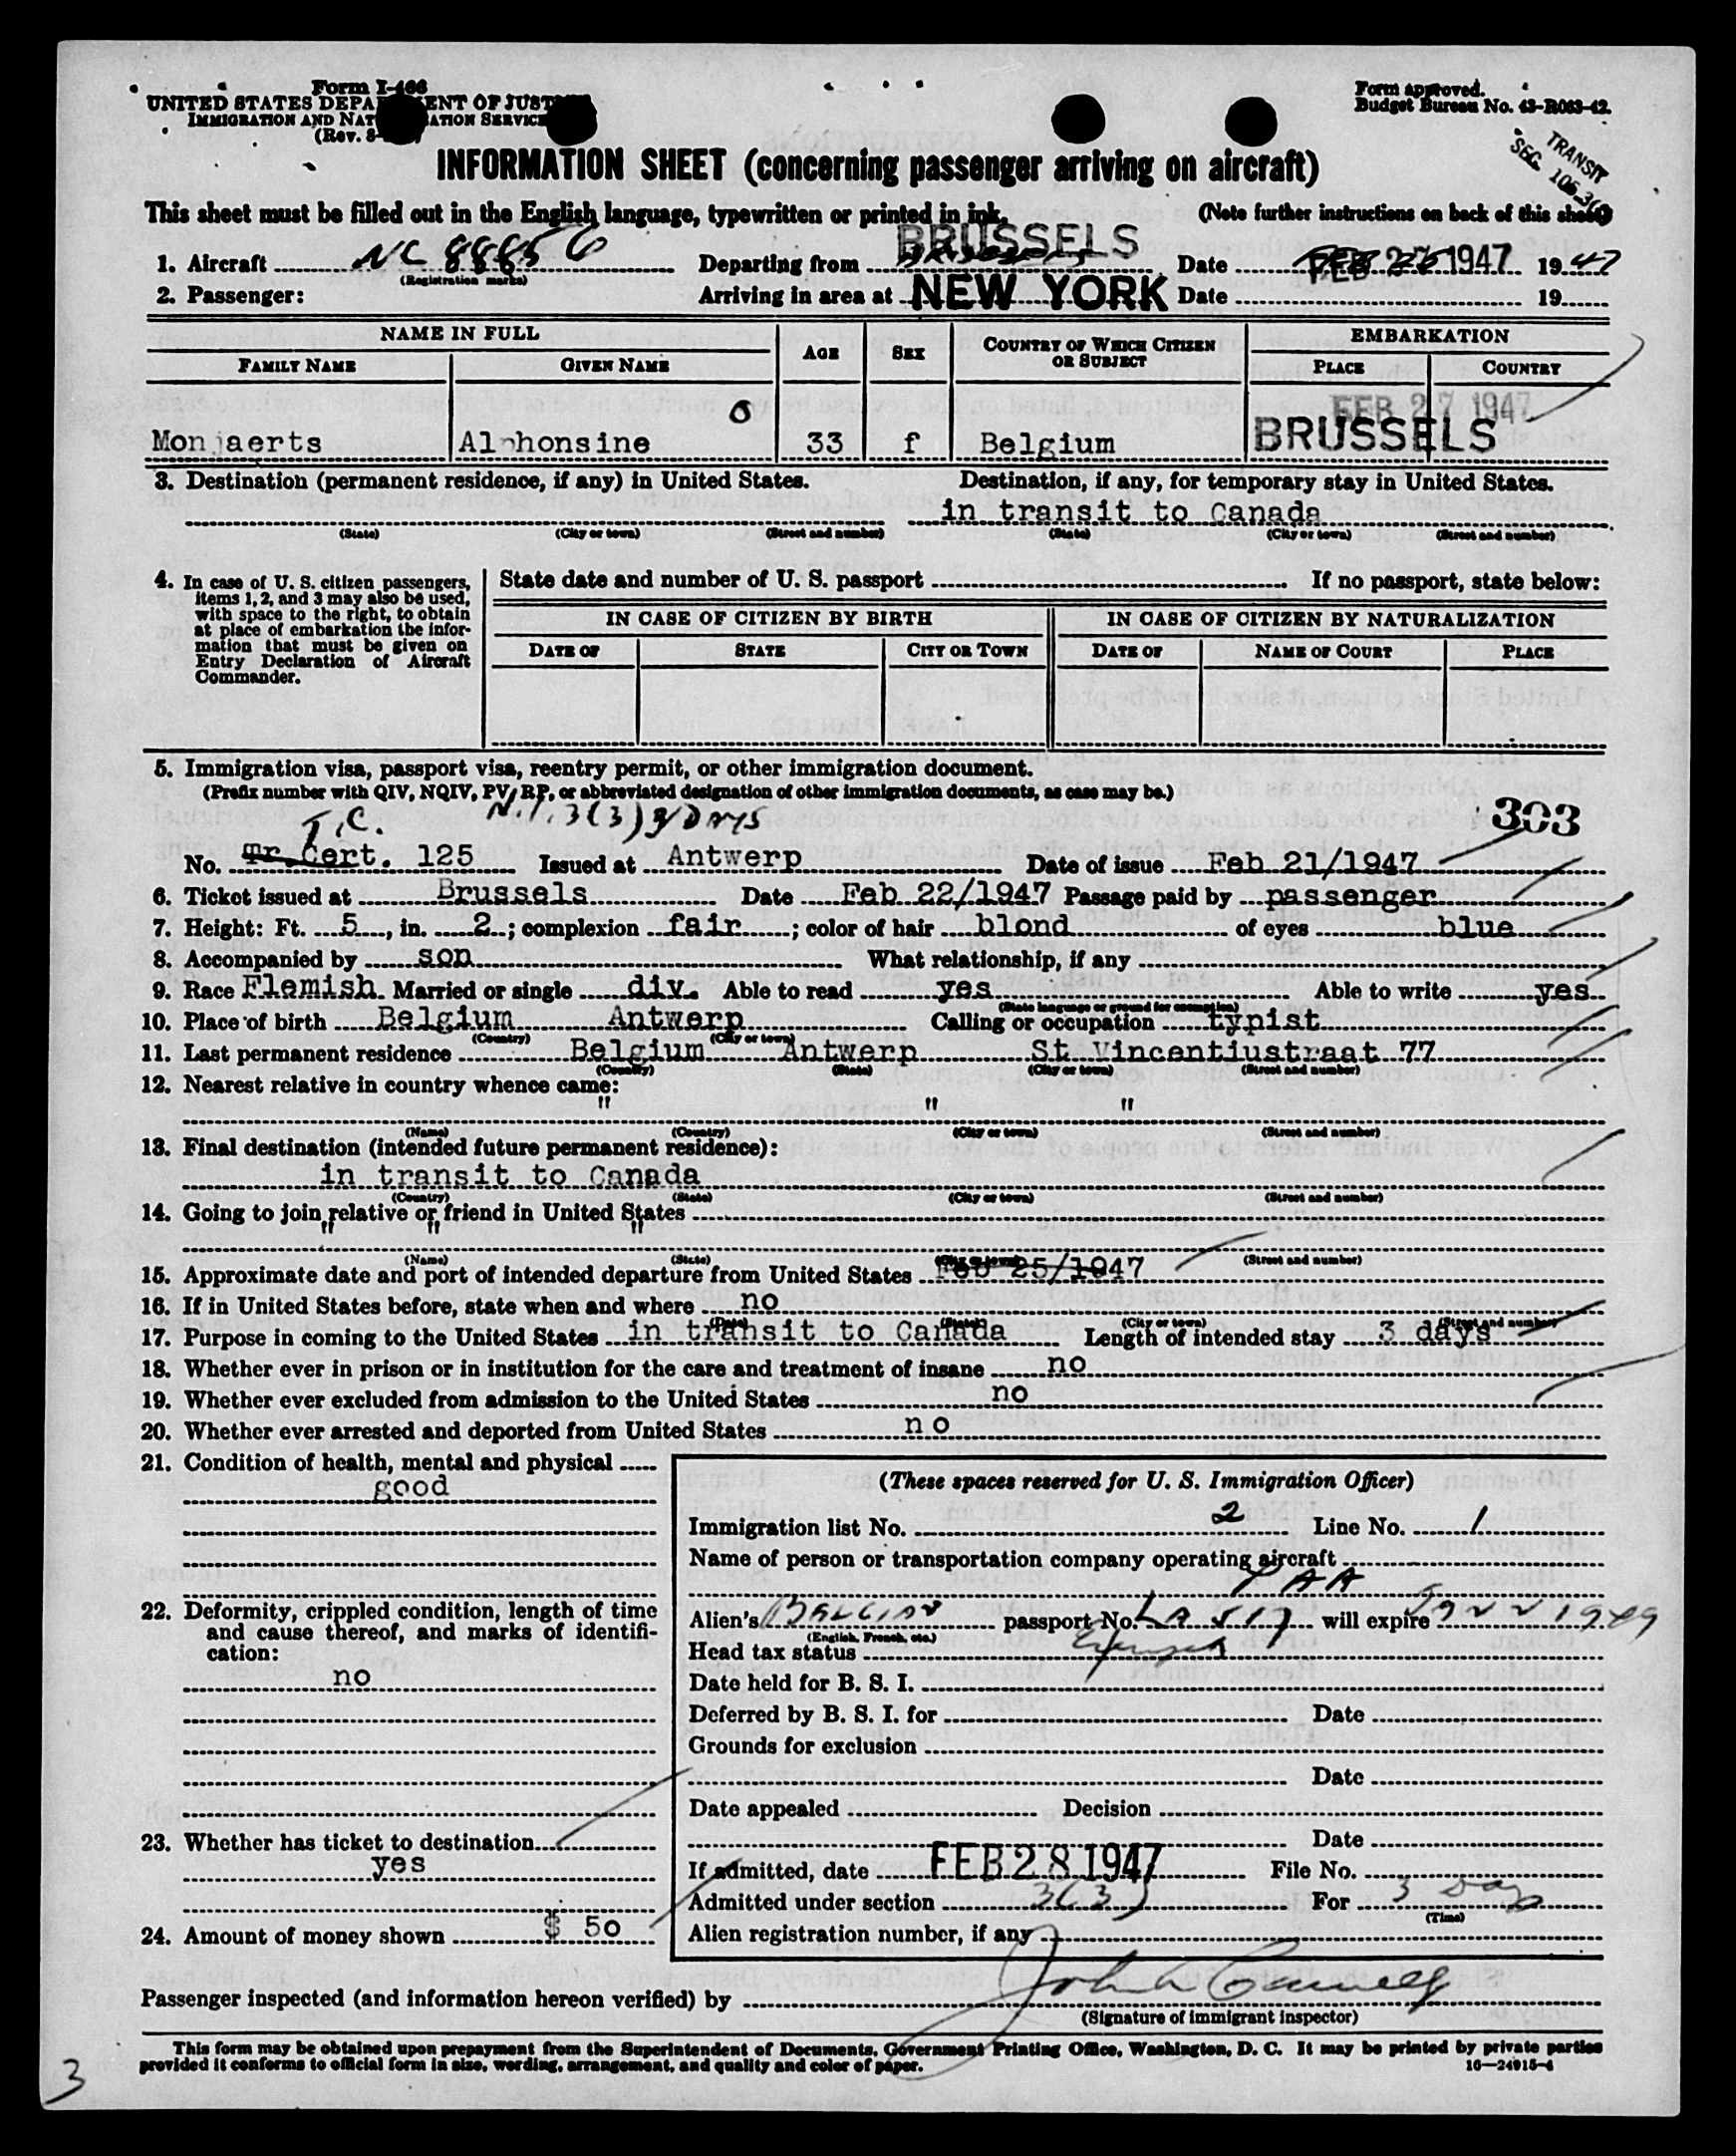 Form I-466
UNITED STATES DEPARTMENT OF JUSTICE
IMMIGRATION AND NATURALIZATION SERVICE
(Rev. 8-
Form approved.
Budget Bureau No. 43-R063-42.
TRANSIT
SEC. 105.3(
INFORMATION SHEET (concerning passenger arriving on aircraft)
This sheet must be filled out in the English language, typewritten or printed in ink.
(Note further instructions on back of this sheet)
1. Aircraft NC 88856 (Registration marks) Departing from BRUSSELS Date FEB 27 1947 1947
2. Passenger: Arriving in area at NEW YORK Date 19
NAME IN FULL AGE SEX COUNTRY OF WHICH CITIZEN OR SUBJECT EMBARKATION
FAMILY NAME GIVEN NAME PLACE COUNTRY
FEB 27 1947
Monjaerts Alphonsine 33 f Belgium BRUSSELS
3. Destination (permanent residence, if any) in United States. Destination, if any, for temporary stay in United States.
in transit to Canada
(State) (City or town) (Street and number) (State) (City or town) (Street and number)
4. In case of U. S. citizen passengers, items 1, 2, and 3 may also be used, with space to the right, to obtain at place of embarkation the information that must be given on Entry Declaration of Aircraft Commander.
State date and number of U. S. passport If no passport, state below:
IN CASE OF CITIZEN BY BIRTH IN CASE OF CITIZEN BY NATURALIZATION
DATE OF STATE CITY OR TOWN DATE OF NAME OF COURT PLACE
5. Immigration visa, passport visa, reentry permit, or other immigration document.
(Prefix number with QIV, NQIV, PV, RP, or abbreviated designation of other immigration documents, as case may be.)
T.C. 3(3) DAYS 303
No. Tr.Cert. 125 Issued at Antwerp Date of issue Feb 21/1947
6. Ticket issued at Brussels Date Feb 22/1947 Passage paid by passenger
7. Height: Ft. 5, in. 2; complexion fair; color of hair blond of eyes blue
8. Accompanied by son What relationship, if any
9. Race Flemish Married or single div. Able to read yes Able to write yes
(State language or ground for exemption)
10. Place of birth Belgium Antwerp Calling or occupation typist
(Country) (City or town)
11. Last permanent residence Belgium Antwerp St Vincentiustraat 77
(Country) (State) (City or town) (Street and number)
12. Nearest relative in country whence came:
" " "
(Name) (Country) (City or town) (Street and number)
13. Final destination (intended future permanent residence):
in transit to Canada
(Country) (State) (City or town) (Street and number)
14. Going to join relative or friend in United States
" " "
(Name) (State) (City or town) (Street and number)
15. Approximate date and port of intended departure from United States Feb 25/1947
16. If in United States before, state when and where no
(Date) (State) (City or town) (Street and number)
17. Purpose in coming to the United States in transit to Canada Length of intended stay 3 days
18. Whether ever in prison or in institution for the care and treatment of insane no
19. Whether ever excluded from admission to the United States no
20. Whether ever arrested and deported from United States no
21. Condition of health, mental and physical
good
22. Deformity, crippled condition, length of time and cause thereof, and marks of identification:
no
23. Whether has ticket to destination
yes
24. Amount of money shown $ 50
(These spaces reserved for U. S. Immigration Officer)
Immigration list No. 2 Line No. 1
Name of person or transportation company operating aircraft
PAA
Alien's passport No. will expire 1949
(English, French, etc.)
Head tax status
Date held for B. S. I.
Deferred by B. S. I. for Date
Grounds for exclusion
Date
Date appealed Decision
Date
If admitted, date FEB 28 1947 File No.
Admitted under section 3(3) For 3 Days
(Time)
Alien registration number, if any
Passenger inspected (and information hereon verified) by
(Signature of immigrant inspector)
This form may be obtained upon prepayment from the Superintendent of Documents, Government Printing Office, Washington, D. C. It may be printed by private parties
provided it conforms to official form in size, wording, arrangement, and quality and color of paper.
16—24915-4
3